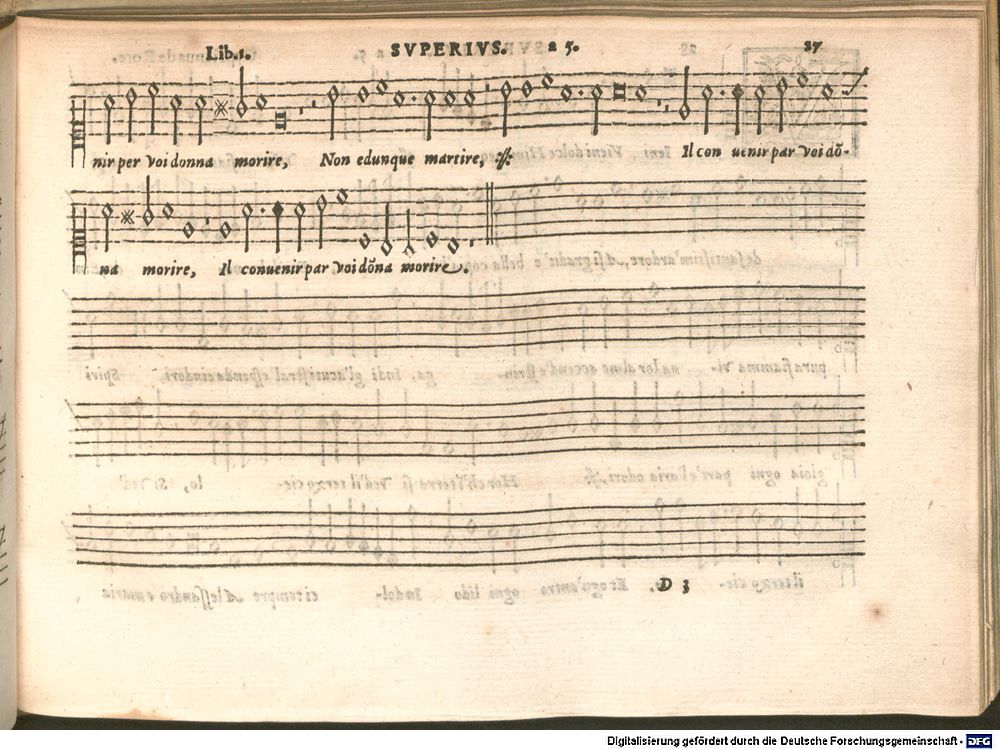 Lib.1. SVPERIVS. a 5. 27
nir per voi donna morire, Non e dunque martire, Il con uenir par voi dõ-
na morire, Il conuenir par voi dõna morire.
D 3
Digitalisierung gefördert durch die Deutsche Forschungsgemeinschaft - DFG